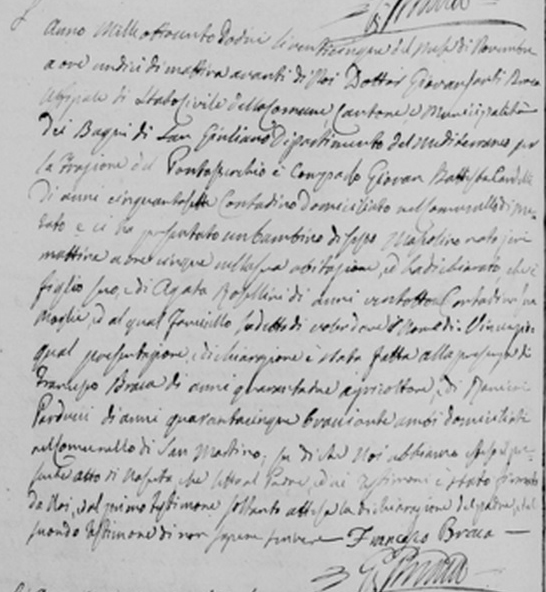 Anno Mille ottocento dodici li venticinque del mese di Novembre
a ore undici di mattina avanti di Noi Dottor Giovan Santi Braca
Uffiziale di Stato Civile della Comune Cantone e Municipalità
dei Bagni di San Giuliano Dipartimento del Mediterraneo per
la Frazione del Pontasserchio è comparso Giovan Battista
di anni cinquantasette Contadino domiciliato nel comunello di
e ci ha presentato un bambino di sesso Mascolino nato jeri
mattina a ore cinque nella sua abitazione, ed ha dichiarato che è
figlio suo, e di Agata Rosellini di anni ventotto Contadina sua
Moglie, ed al qual fanciullo ha detto di voler dare il Nome di Vincenzio
qual presentazione, e dichiarazione è stata fatta alla presenza di
Francesco Braca di anni quarantadue agricoltore, e di Ranieri
Parducci di anni quarantacinque bracciante ambi domiciliati
nel Comunello di San Martino, su di che Noi abbiamo steso il pre-
sente atto di Nascita che letto al Padre, ed ai testimoni è stato firmato
da Noi, e dal primo testimone soltanto attesa la dichiarazione del padre, e del
secondo testimone di non sapere scrivere Francesco Braca